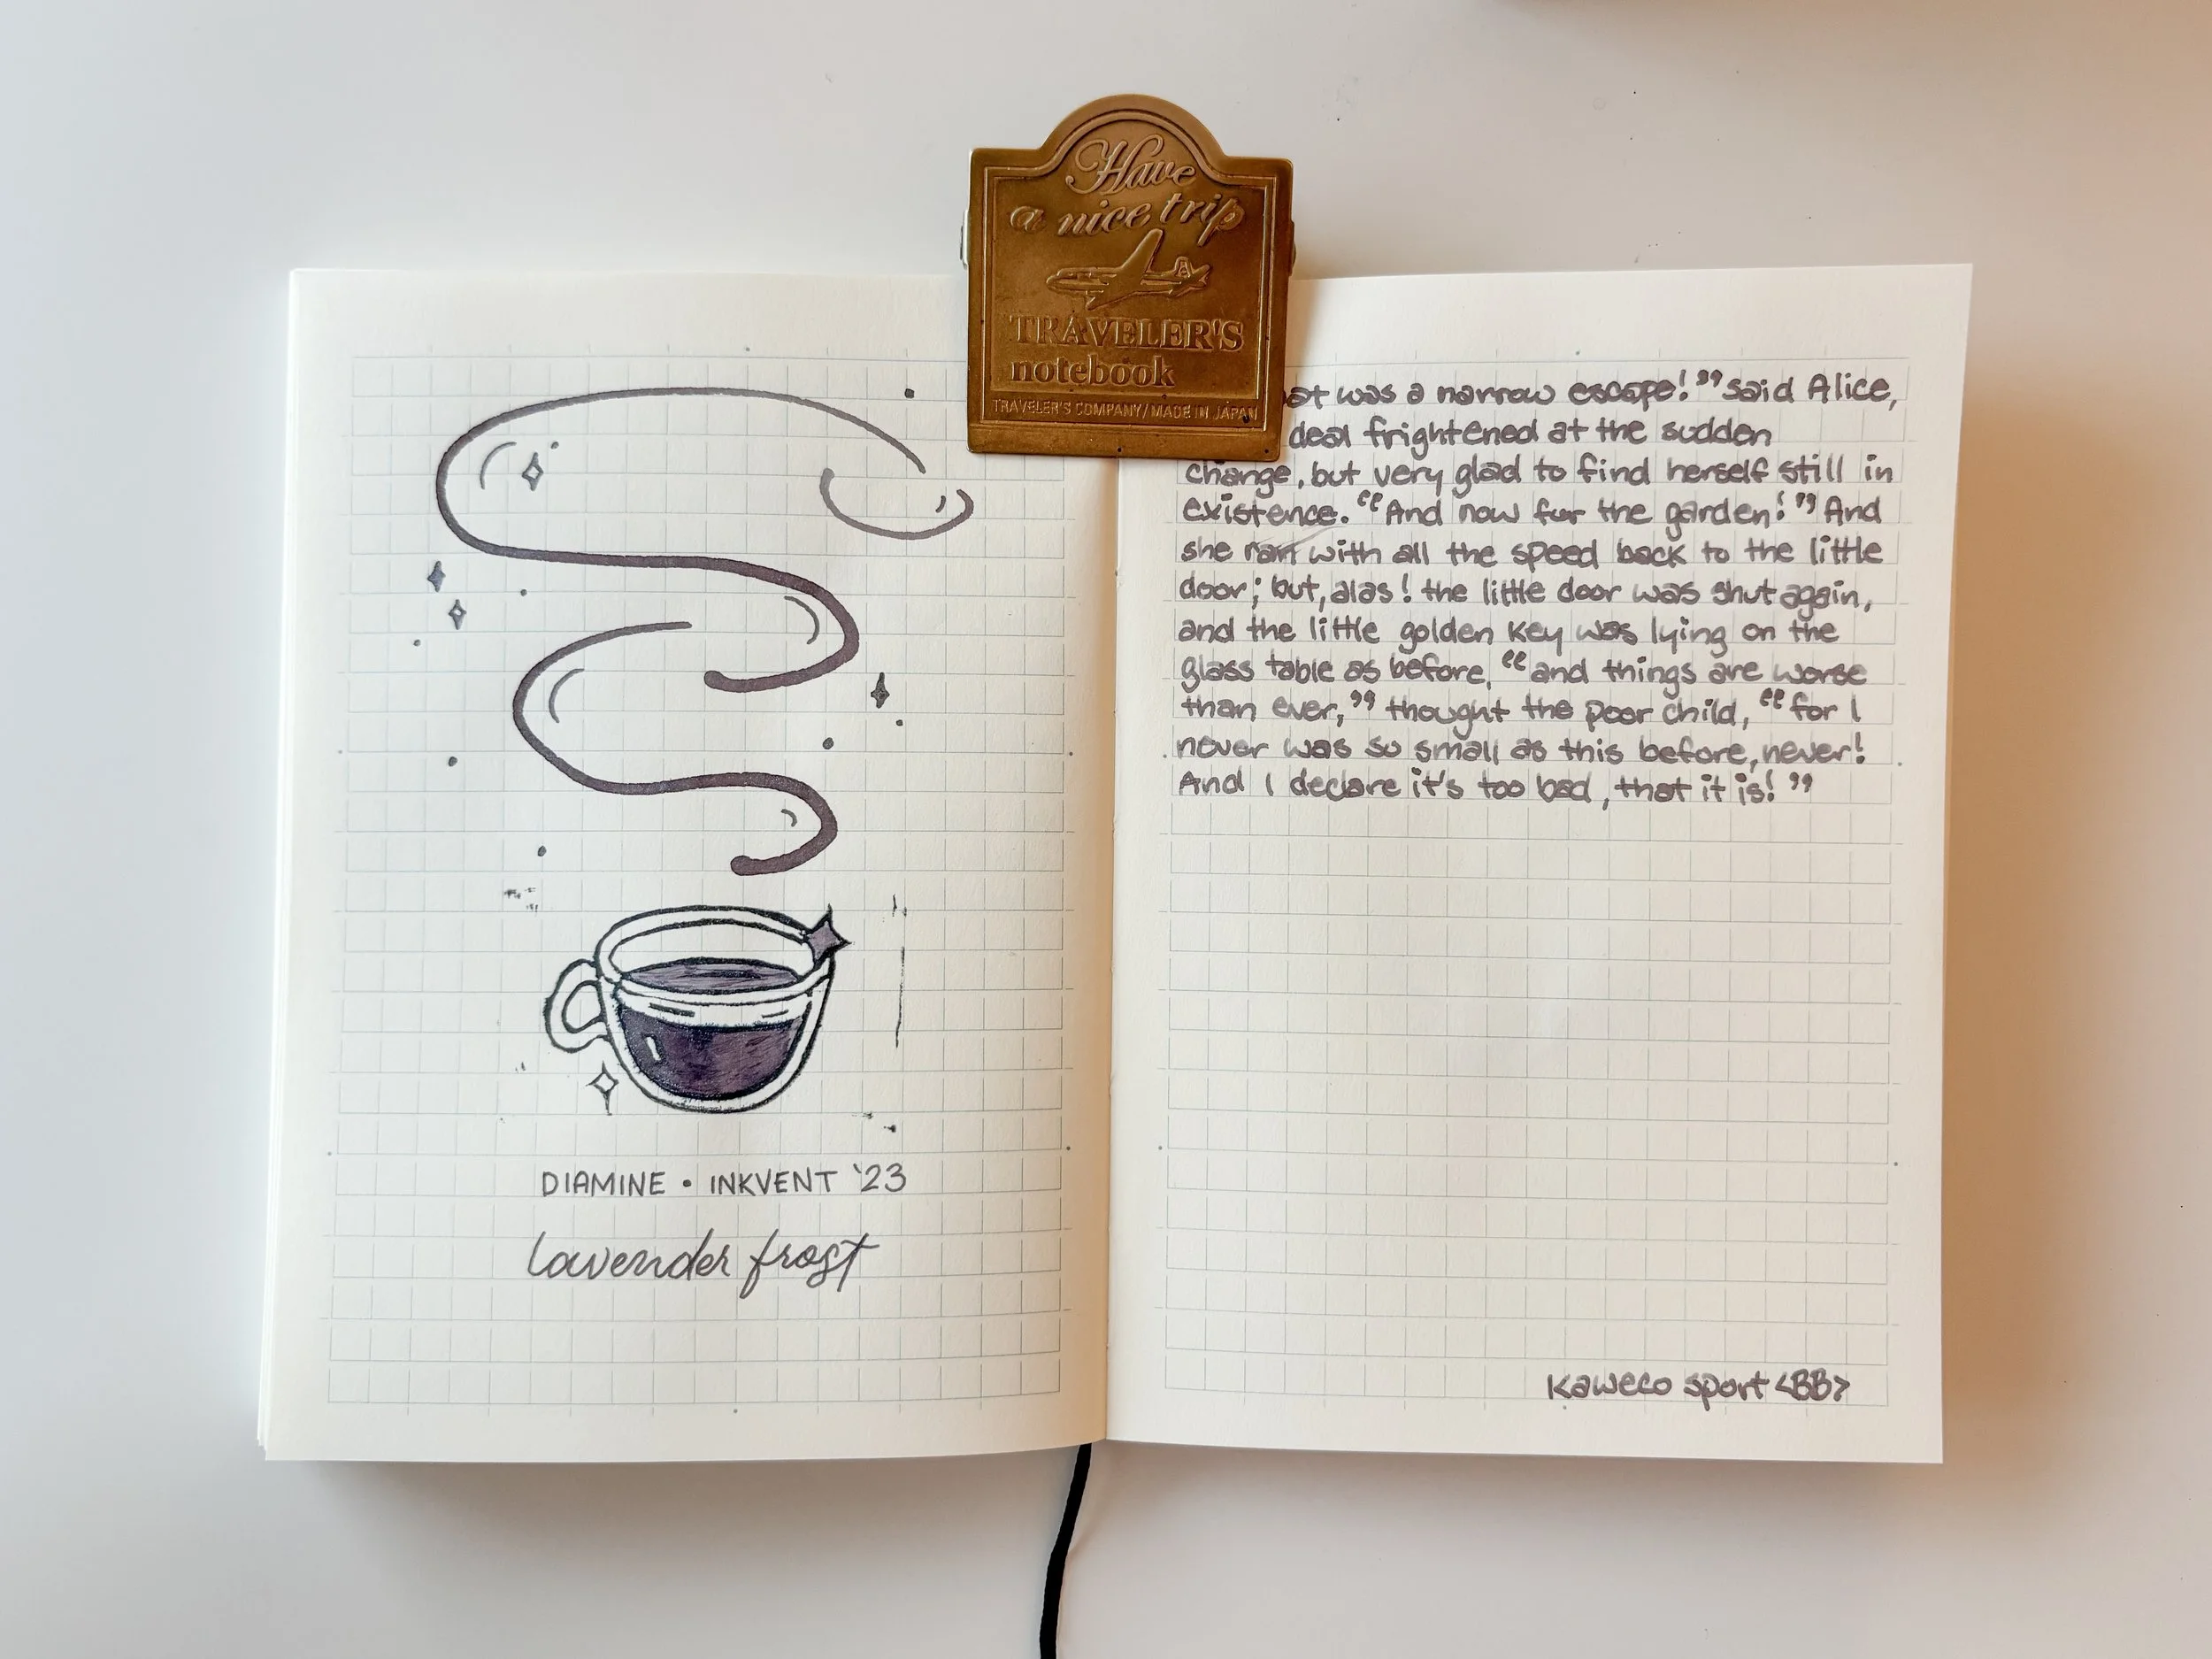 Have
a nice trip
TRAVELER'S
notebook
TRAVELER'S COMPANY/MADE IN JAPAN
DIAMINE • INKVENT '23
lavender frost
was a narrow escape!” said Alice,
deal frightened at the sudden
change, but very glad to find herself still in
existence. “And now for the garden!” And
she ran with all the speed back to the little
door; but, alas! the little door was shut again,
and the little golden key was lying on the
glass table as before, “and things are worse
than ever,” thought the poor child, “for I
never was so small as this before, never!
And I declare it's too bad, that it is!”
Kaweco sport <BB>